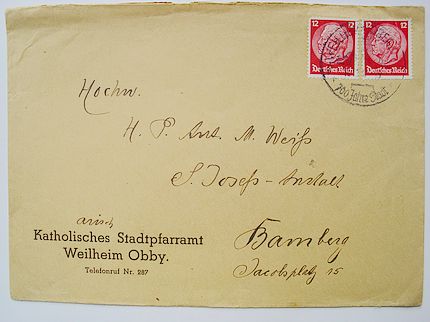 12 12
Deutsches Reich Deutsches Reich
700 Jahre Stadt
Hochw.
H. P. Ant. M. Weiß
S. Josefs-Anstalt
arisch
Katholisches Stadtpfarramt
Weilheim Obby.
Telefonruf Nr. 287
Bamberg
Jacobsplatz 15